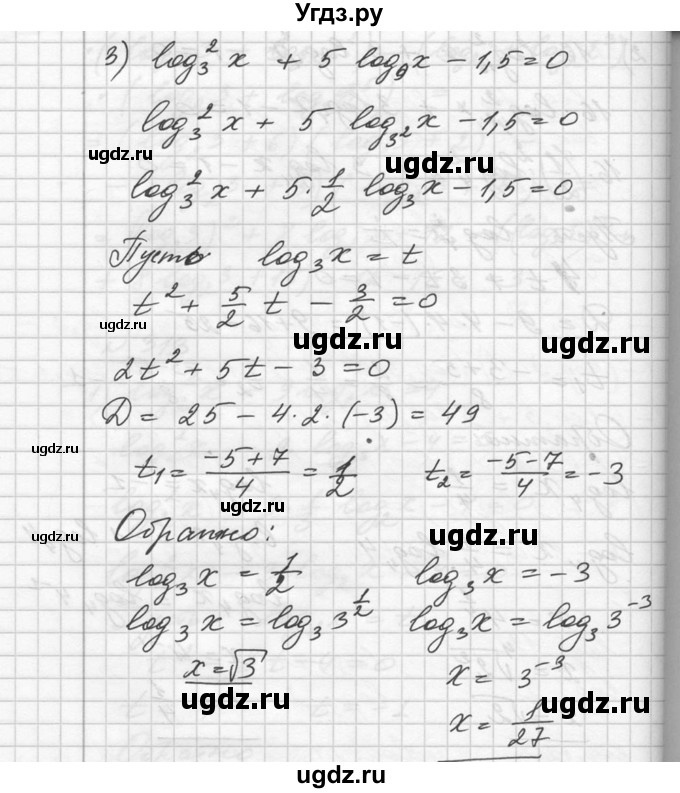 Угдз.ру
3) log₃² x + 5 log₉x − 1,5 = 0
log₃² x + 5 log₃²x − 1,5 = 0
ugdz.ru ugdz.ru
log₃² x + 5·1/2 log₃x − 1,5 = 0
Пусть log₃x = t
t² + 5/2 t − 3/2 = 0
ugdz.ru ugdz.ru ugdz.ru
2t² + 5t − 3 = 0
D = 25 − 4·2·(−3) = 49
ugdz.ru
t₁ = (−5+7)/4 = 1/2 t₂ = (−5−7)/4 = −3
ugdz.ru
Обратно:
ugdz.ru ugdz.ru
log₃x = 1/2 log₃x = −3
log₃x = log₃3^(1/2) log₃x = log₃3⁻³
ugdz.ru ugdz.ru
x = √3 x = 3⁻³
ugdz.ru ugdz.ru
x = 1/27
ugdz.ru